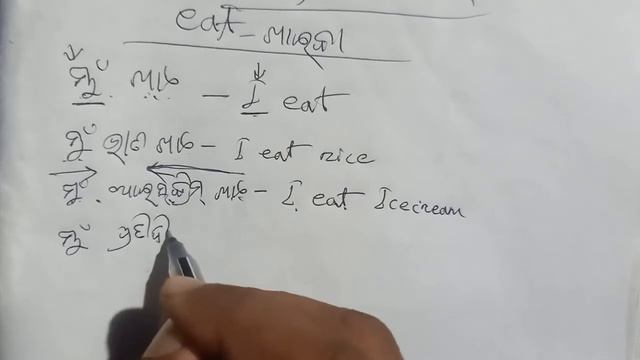 eat - ଖାଇବା
ମୁଁ ଖାଏ - I eat
ମୁଁ ଭାତ ଖାଏ - I eat rice
ମୁଁ ଆଇସ୍କ୍ରିମ୍ ଖାଏ - I eat Icecream
ମୁଁ ପ୍ରତିଦି